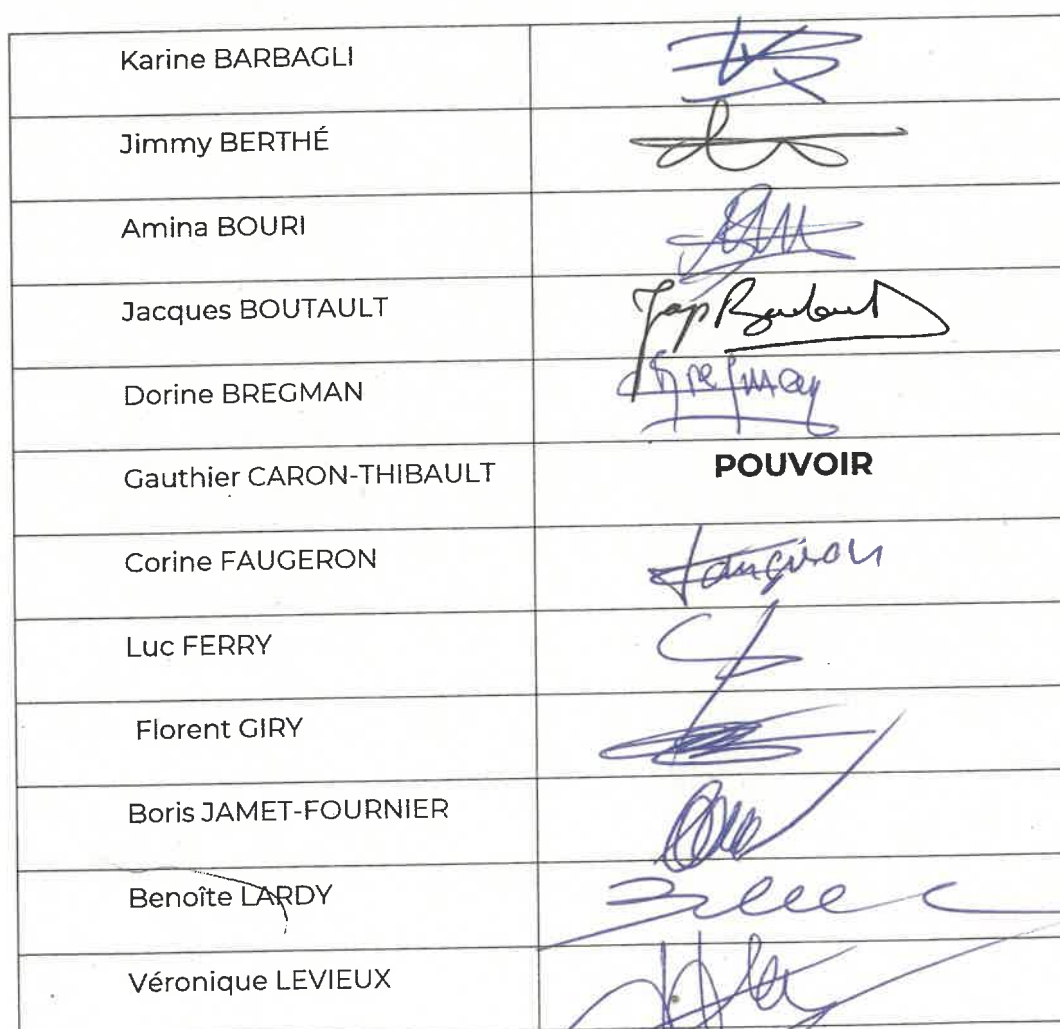 Karine BARBAGLI
Jimmy BERTHÉ
Amina BOURI
Jacques BOUTAULT
Dorine BREGMAN
Bregman
Gauthier CARON-THIBAULT POUVOIR
Corine FAUGERON
Faugeron
Luc FERRY
Florent GIRY
Boris JAMET-FOURNIER
Benoîte LARDY
Véronique LEVIEUX